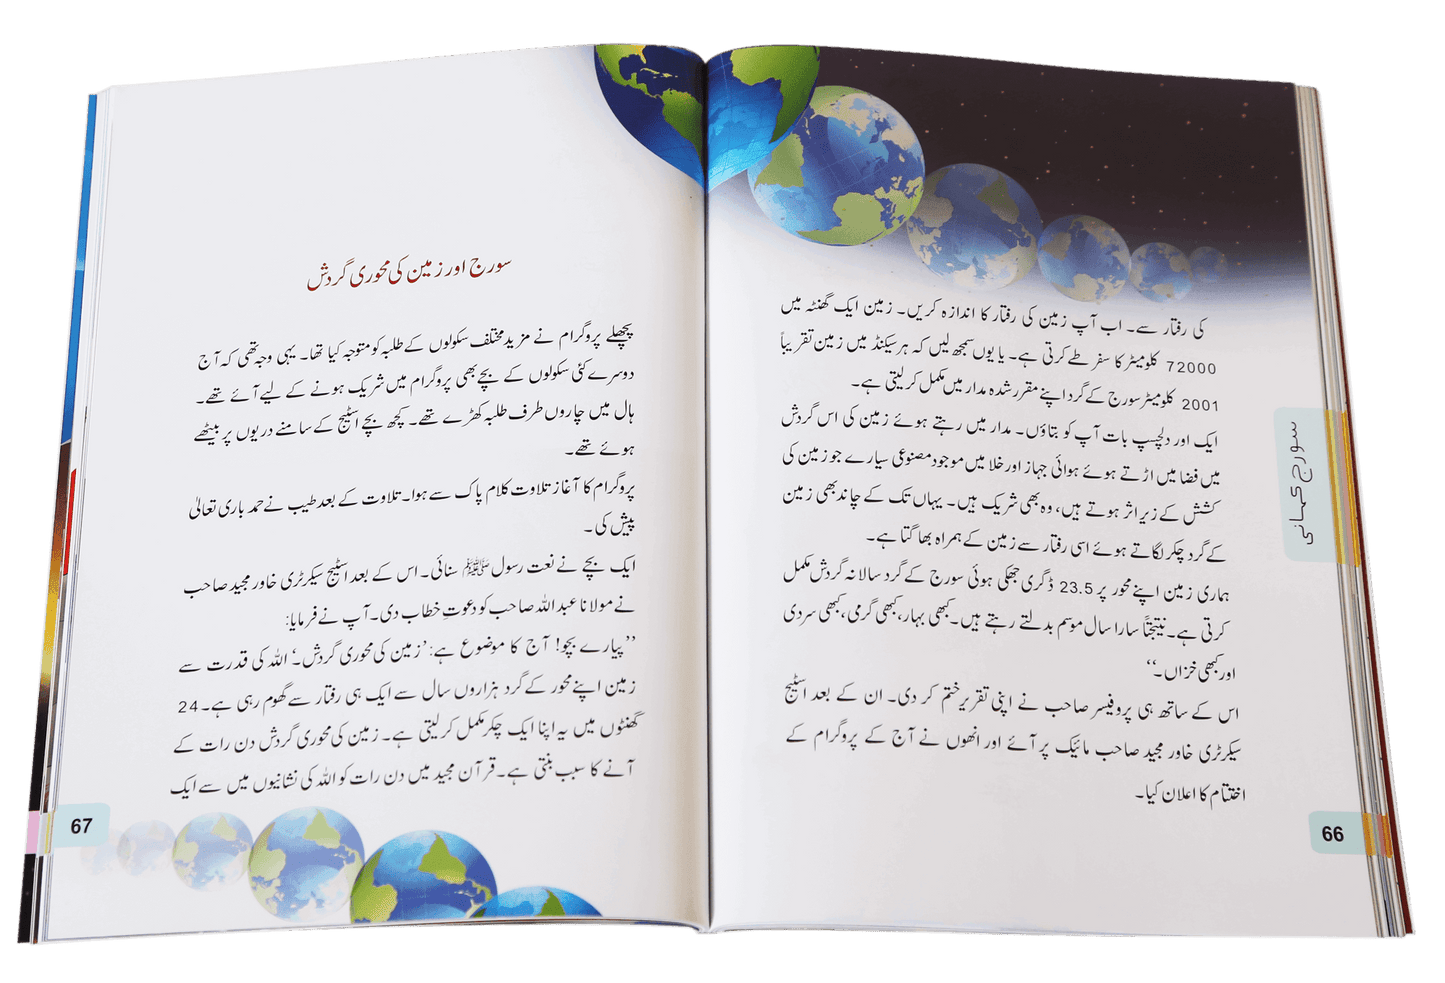 کی رفتار سے۔ اب آپ زمین کی رفتار کا اندازہ کریں۔ زمین ایک گھنٹہ میں
72000 کلومیٹر کا سفر طے کرتی ہے۔ یا یوں سمجھ لیں کہ ہر سیکنڈ میں زمین تقریباً
2001 کلومیٹر سورج کے گرد اپنے مقرر شدہ مدار میں مکمل کر لیتی ہے۔
ایک اور دلچسپ بات آپ کو بتاؤں۔ مدار میں رہتے ہوئے زمین کی اس گردش
میں فضا میں اڑتے ہوئے ہوائی جہاز اور خلا میں موجود مصنوعی سیارے جو زمین کی
کشش کے زیر اثر ہوتے ہیں، وہ بھی شریک ہیں۔ یہاں تک کے چاند بھی زمین
کے گرد چکر لگاتے ہوئے اسی رفتار سے زمین کے ہمراہ بھاگتا ہے۔
ہماری زمین اپنے محور پر 23.5 ڈگری جھکی ہوئی سورج کے گرد سالانہ گردش مکمل
کرتی ہے۔ نتیجتاً سارا سال موسم بدلتے رہتے ہیں۔ کبھی بہار، کبھی گرمی، کبھی سردی
اور کبھی خزاں۔‘‘
اس کے ساتھ ہی پروفیسر صاحب نے اپنی تقریر ختم کر دی۔ ان کے بعد اسٹیج
سیکرٹری خاور مجید صاحب مائیک پر آئے اور انھوں نے آج کے پروگرام کے
اختتام کا اعلان کیا۔
سورج کہانی
66
سورج اور زمین کی محوری گردش
پچھلے پروگرام نے مزید مختلف سکولوں کے طلبہ کو متوجہ کیا تھا۔ یہی وجہ تھی کہ آج
دوسرے کئی سکولوں کے بچے بھی پروگرام میں شریک ہونے کے لیے آئے تھے۔
ہال میں چاروں طرف طلبہ کھڑے تھے۔ کچھ بچے اسٹیج کے سامنے دریوں پر بیٹھے
ہوئے تھے۔
پروگرام کا آغاز تلاوت کلام پاک سے ہوا۔ تلاوت کے بعد طیب نے حمد باری تعالیٰ
پیش کی۔
ایک بچے نے نعت رسول ﷺ سنائی۔ اس کے بعد اسٹیج سیکرٹری خاور مجید صاحب
نے مولانا عبداللہ صاحب کو دعوتِ خطاب دی۔ آپ نے فرمایا:
’’پیارے بچو! آج کا موضوع ہے: ’زمین کی محوری گردش۔‘ اللہ کی قدرت سے
زمین اپنے محور کے گرد ہزاروں سال سے ایک ہی رفتار سے گھوم رہی ہے۔ 24
گھنٹوں میں یہ اپنا ایک چکر مکمل کر لیتی ہے۔ زمین کی محوری گردش دن رات کے
آنے کا سبب بنتی ہے۔ قرآن مجید میں دن رات کو اللہ کی نشانیوں میں سے ایک
67